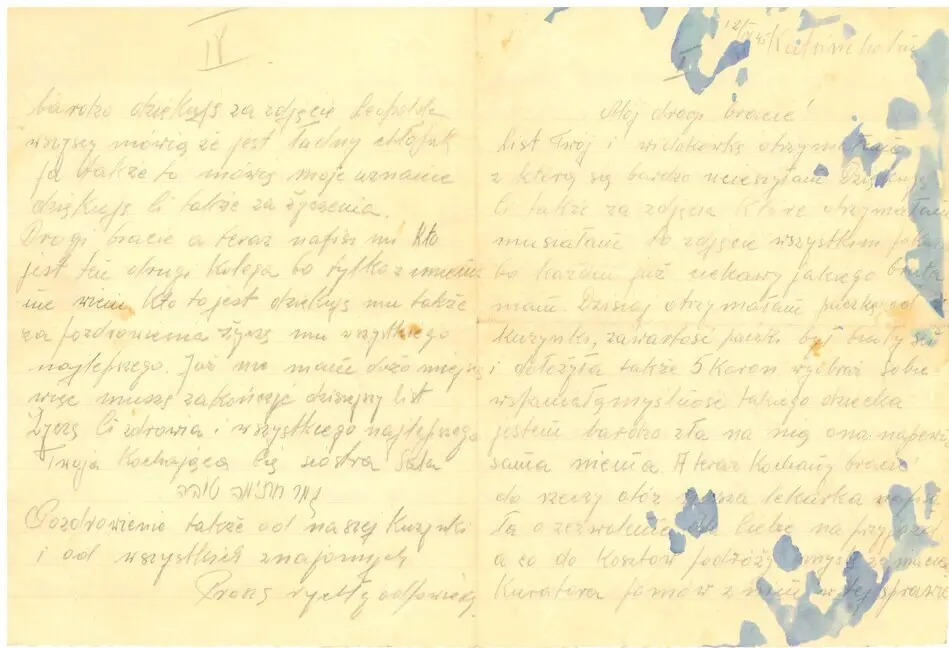 I
12/IX 45 Katrineholm
Mój drogi bracie!
List Twój i widokówkę otrzymałam
z której się bardzo ucieszyłam Dziękuję
Ci także za zdjęcia które otrzymałam
musiałam to zdjęcie wszystkim
bo każdy już ciekawy jakiego brata
mam. Dzisiaj otrzymałam paczkę od
kuzynki, zawartość paczki był
i dołożyła także 5 Koron wyobraź sobie
wspaniałomyślność takiego dziecka
jestem bardzo zła na nią ona napewno
sama niema. A teraz Kochany bracie
do rzeczy otóż nasza lekarka napisa
ła o zezwolenie dla Ciebie na przyjazd
a co do kosztów podróży myślę że macie
Kuratora pomów z nim w tej sprawie
IV
bardzo dziękuję za zdjęcie Leopolda
wszyscy mówią że jest ładny chłopak
ja także to mówię moje uznanie
dziękuję Ci także za życzenia.
Drogi bracie a teraz napisz mi kto
jest ten drugi Kolega bo tylko z imienia
nie wiem kto to jest dziękuję mu także
za pozdrowienia życzę mu wszystkiego
najlepszego. Już nie mam dużo miejsca
więc muszę zakończyć dzisiejszy list
Życzę Ci zdrowia i wszystkiego najlepszego
Twoja Kochająca Cię siostra Sala
גמר חתימה טובה
Pozdrowienie także od naszej Kuzynki
i od wszystkich znajomych
Proszę o odpowiedź